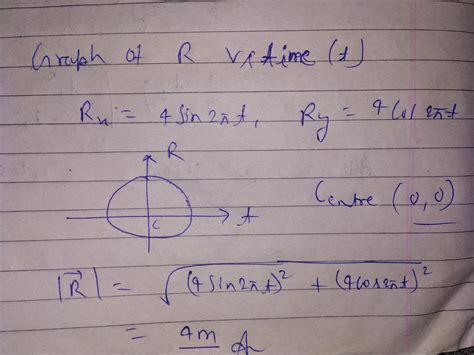 Graph of R Vs time (t)
Rx = 4 Sin 2π t, Ry = 4 Cos 2π t
R
c t
Centre (0,0)
|R⃗| = √(4 Sin 2π t)² + (4 cos 2π t)²
= 4m